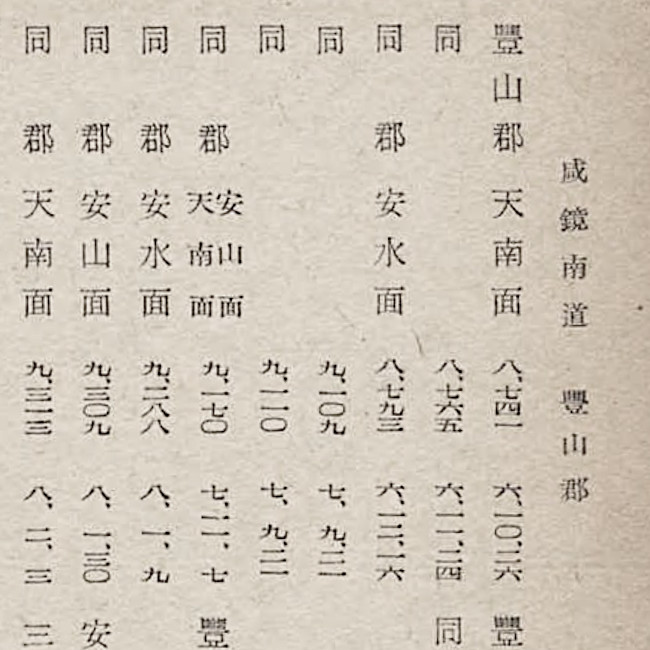 咸鏡南道　豐山郡
豐山郡天南面　八、七四一　六、一〇、二六　豐
同　八、七六五　六、一一、二四　同
同　郡安水面　八、七九三　六、一二、一六
同　九、一〇九　七、九、二一
同　九、一一〇　七、九、二一
同　郡安山面天南面　九、一七〇　七、一一、七　豐
同　郡安水面　九、二八八　八、一、九
同　郡安山面　九、三〇九　八、一、三〇　安
同　郡天南面　九、三一三　八、二、三　三